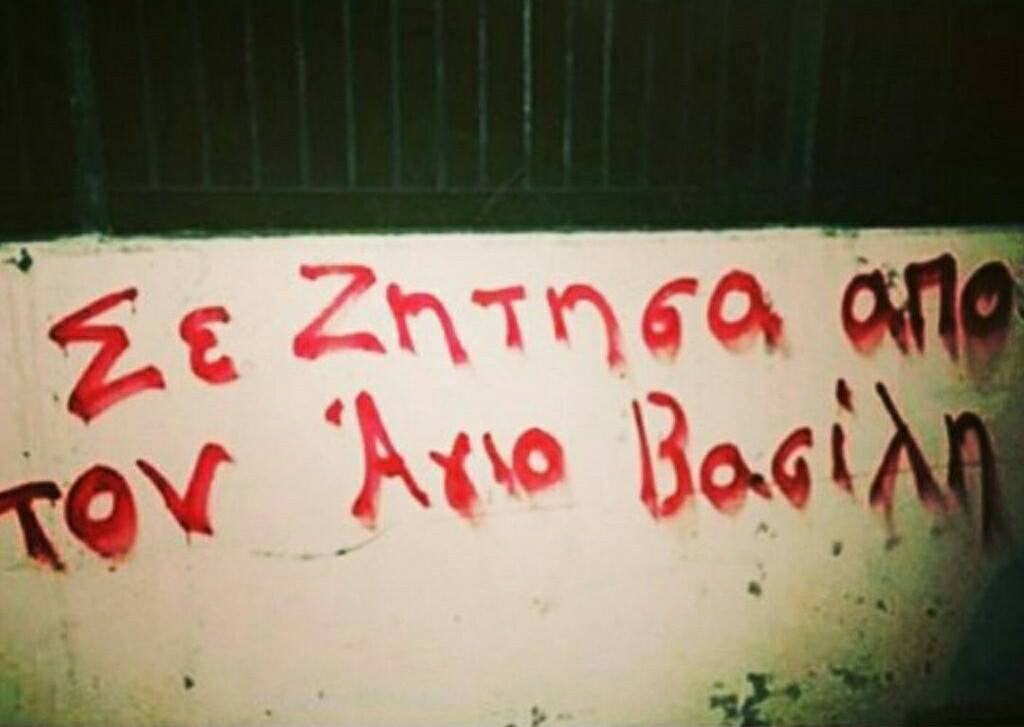 Σε Ζητησα απο
τον Άγιο Βασίλη